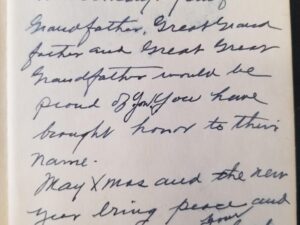 Grandfather, Great Grand
father and Great Great
Grandfather would be
proud of you! You have
brought honor to their
name.
May Xmas and the new
year bring peace and
your